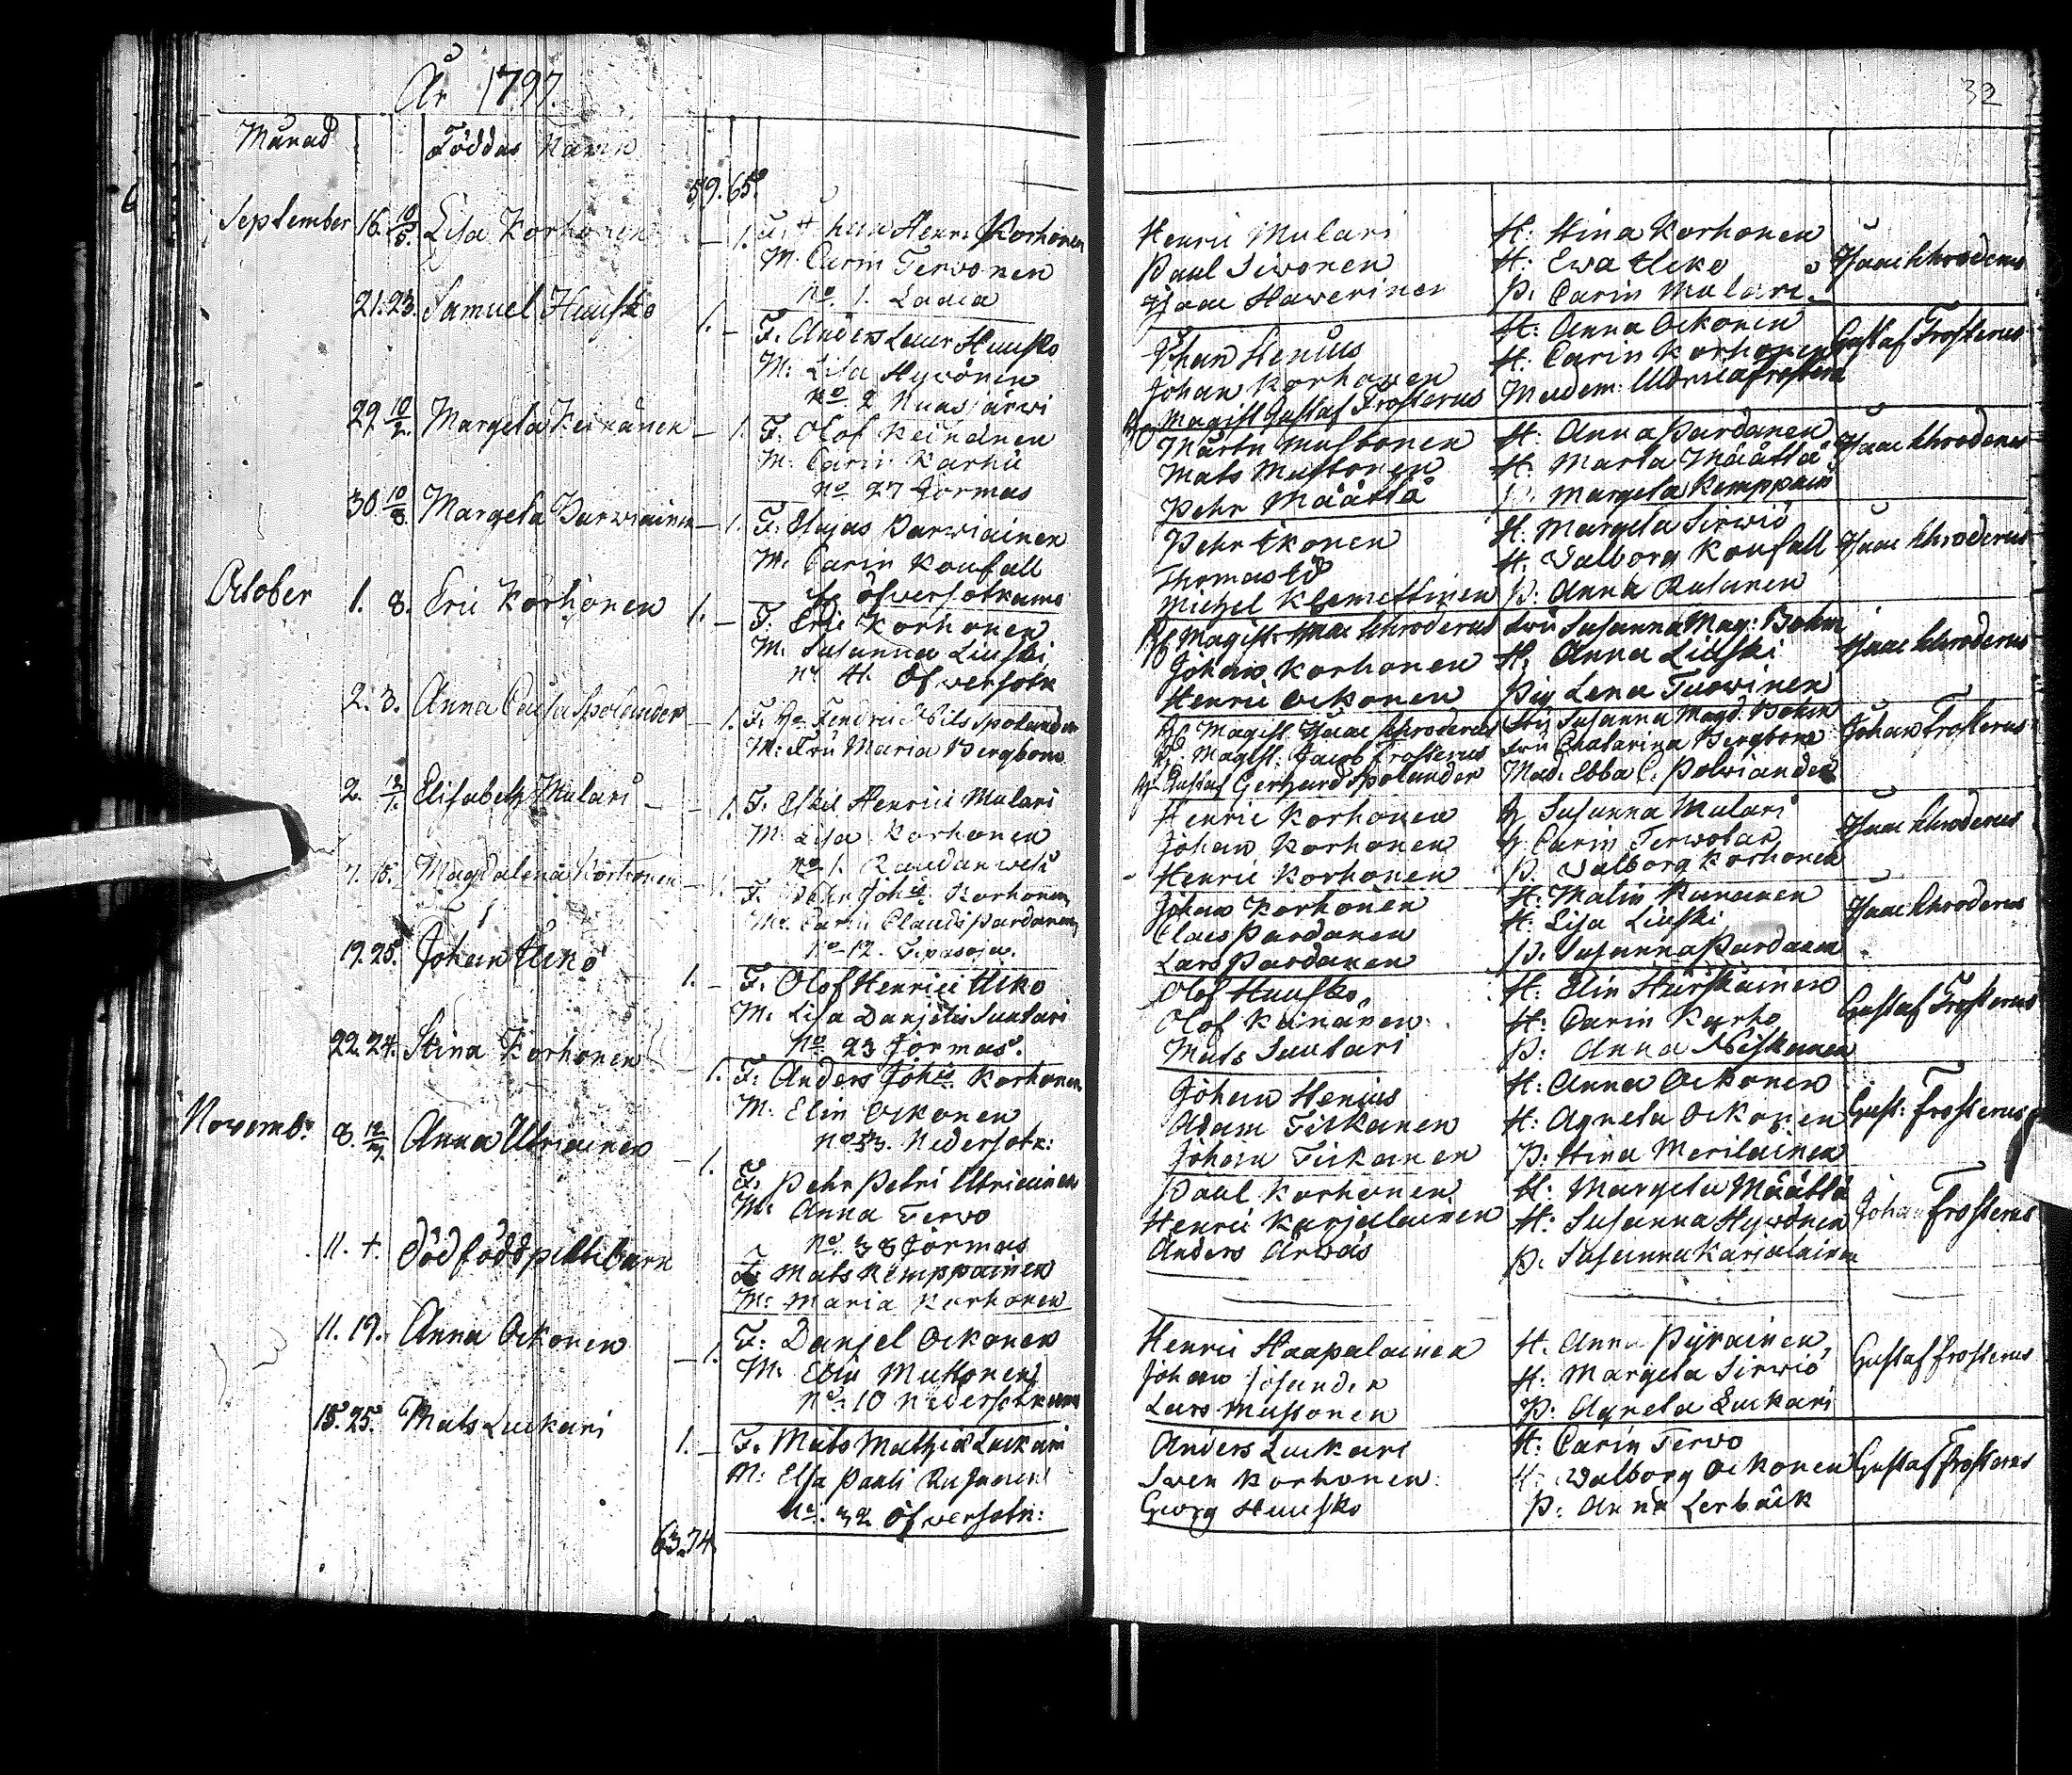 År 1797.
32
Månad
Föddas Namn
6
59. 65.
September 16. 10/8. Lisa Korhonen – 1.
Henri Korhonen
M. Carin Tervonen
No. 1.
Henric Mulari
Paul Sivonen
Isaac Haverinen
H: Stina Korhonen
H: Ewa Ucko
P. Carin Mulari
Isaac Chroderus
21. 23. Samuel Huusko 1. –
F. Anders Huusko
M: Lisa Hyvönen
No 2 Nuasjärvi
Johan Henius
Johan Korhonen
Hr Magist Gustaf Frosterus
H: Anna Ockonen
H. Carin Korhonen
Madem:
Gustaf Frosterus
29. 10/2. Margeta Keinänen – 1.
F. Olof Keinänen
M: Carin Karhu
No 27 Jormas
Mårtn Mustonen
Mats Mustonen
Pehr Määttä
H: Anna Pardanen
H: Marta Määttä
P. Margeta Kemppain
Isaac Chroderus
30. 10/8. Margeta Parviainen – 1.
F: Elajas Parwiainen
M: Carin Koufall
Pehr Ikonen
Thomas
Michel Klemettinen
H: Margeta Sirwiö
H. Valborg Koufall
P. Anna Rusanen
Isaac Chroderus
October 1. 8. Eric Korhonen 1. –
F. Eric Korhonen
M. Susanna Liuski
No 41. Öfwersotk
Magist: Isaac Chroderus
Johan Korhonen
Henric Ockonen
Fru Susanna Mag: Bohm
H. Anna Liuski
Pig Lena Turwinen
Isaac Chroderus
2. 3. Anna Caisa Spolander – 1.
F. Hr. Fendric Nils Spolander
M: Fru Maria Bergbom
Hr Magist. Isaac Chroderus
Hr. Magist: Jacob Frosterus
Hr Gustaf Gerhard Spolander
Fru Susanna Magd. Bohm
Fru Chatarina Bergbom
Mad. Ebba C. Polviander
Johan Frosterus
2. 13/1. Elisabeth Mulari – – 1.
F. Eskil Henrici Mulari
M: Lisa Korhonen
No 1. Raudanwesi
Henric Korhonen
Johan Korhonen
Henric Korhonen
H Susanna Mulari
H. Carin Terwolax
P. Valborg Korhonen
Isaac Chroderus
7. 15. Magdalena Korhonen – 1.
F. Pehr Johs: Korhonen
M: Carin Claudii Pardanen
No 12. Tipasoja.
Johan Korhonen
Claes Pardanen
Lars Pardanen
H: Malin Kananen
H: Lisa Liuski
P. Susanna Pardanen
Isaac Chroderus
19. 25. Johan Ucko 1. –
F. Olof Henrici Ucko
M. Lisa Danjelis Suutari
No 23 Jormas.
Olof Huusko
Olof Keinänen
Mats Suutari
H: Elin Hurskainen
H: Carin Karho
P: Anna Niskanen
Gustaf Frosterus
22. 24. Stina Korhonen – 1.
F: Anders Johs: Korhonen
M. Elin Ockonen
No 33. Nedersotk:
Johan Henius
Adam Tickanen
Johan Tickanen
H: Anna Ockonen
H: Agneta Ockonen
P. Stina Merilainen
Gust: Frosterus
Novemb: 8. 12/7. Anna Utriainen – 1.
F. Pehr Petri Utriainen
M: Anna Tervo
No. 38 Jormas
Paul Korhonen
Henric Karjalainen
Anders Arwas
H: Margeta Määttä
H: Susanna Hyvönen
P. Susanna Karjalainen
Johan Frosterus
11. † Dödfödd piltebarn
F. Mats Kemppainen
M: Maria Korhonen
11. 19. Anna Ockonen – 1.
F: Danjel Ockonen
M: Elin Mustonen
No. 10 Nedersotkamo
Henric Haapalainen
Johan Josander
Lars Mustonen
H. Anna Pyykainen
H. Margeta Sirwiö
P: Agneta Luckari
Gustaf Frosterus
15. 25. Mats Luckari 1. –
F. Mats Mathiæ Luckari
M: Elsa Pauli Rusanen
No. 32 Öfwersotk:
Anders Luckari
Sven Korhonen
Georg Huusko
H: Carin Tervo
H: Walborg Ockonen
P: Anna Lerback
Gustaf Frosterus
63. 74.